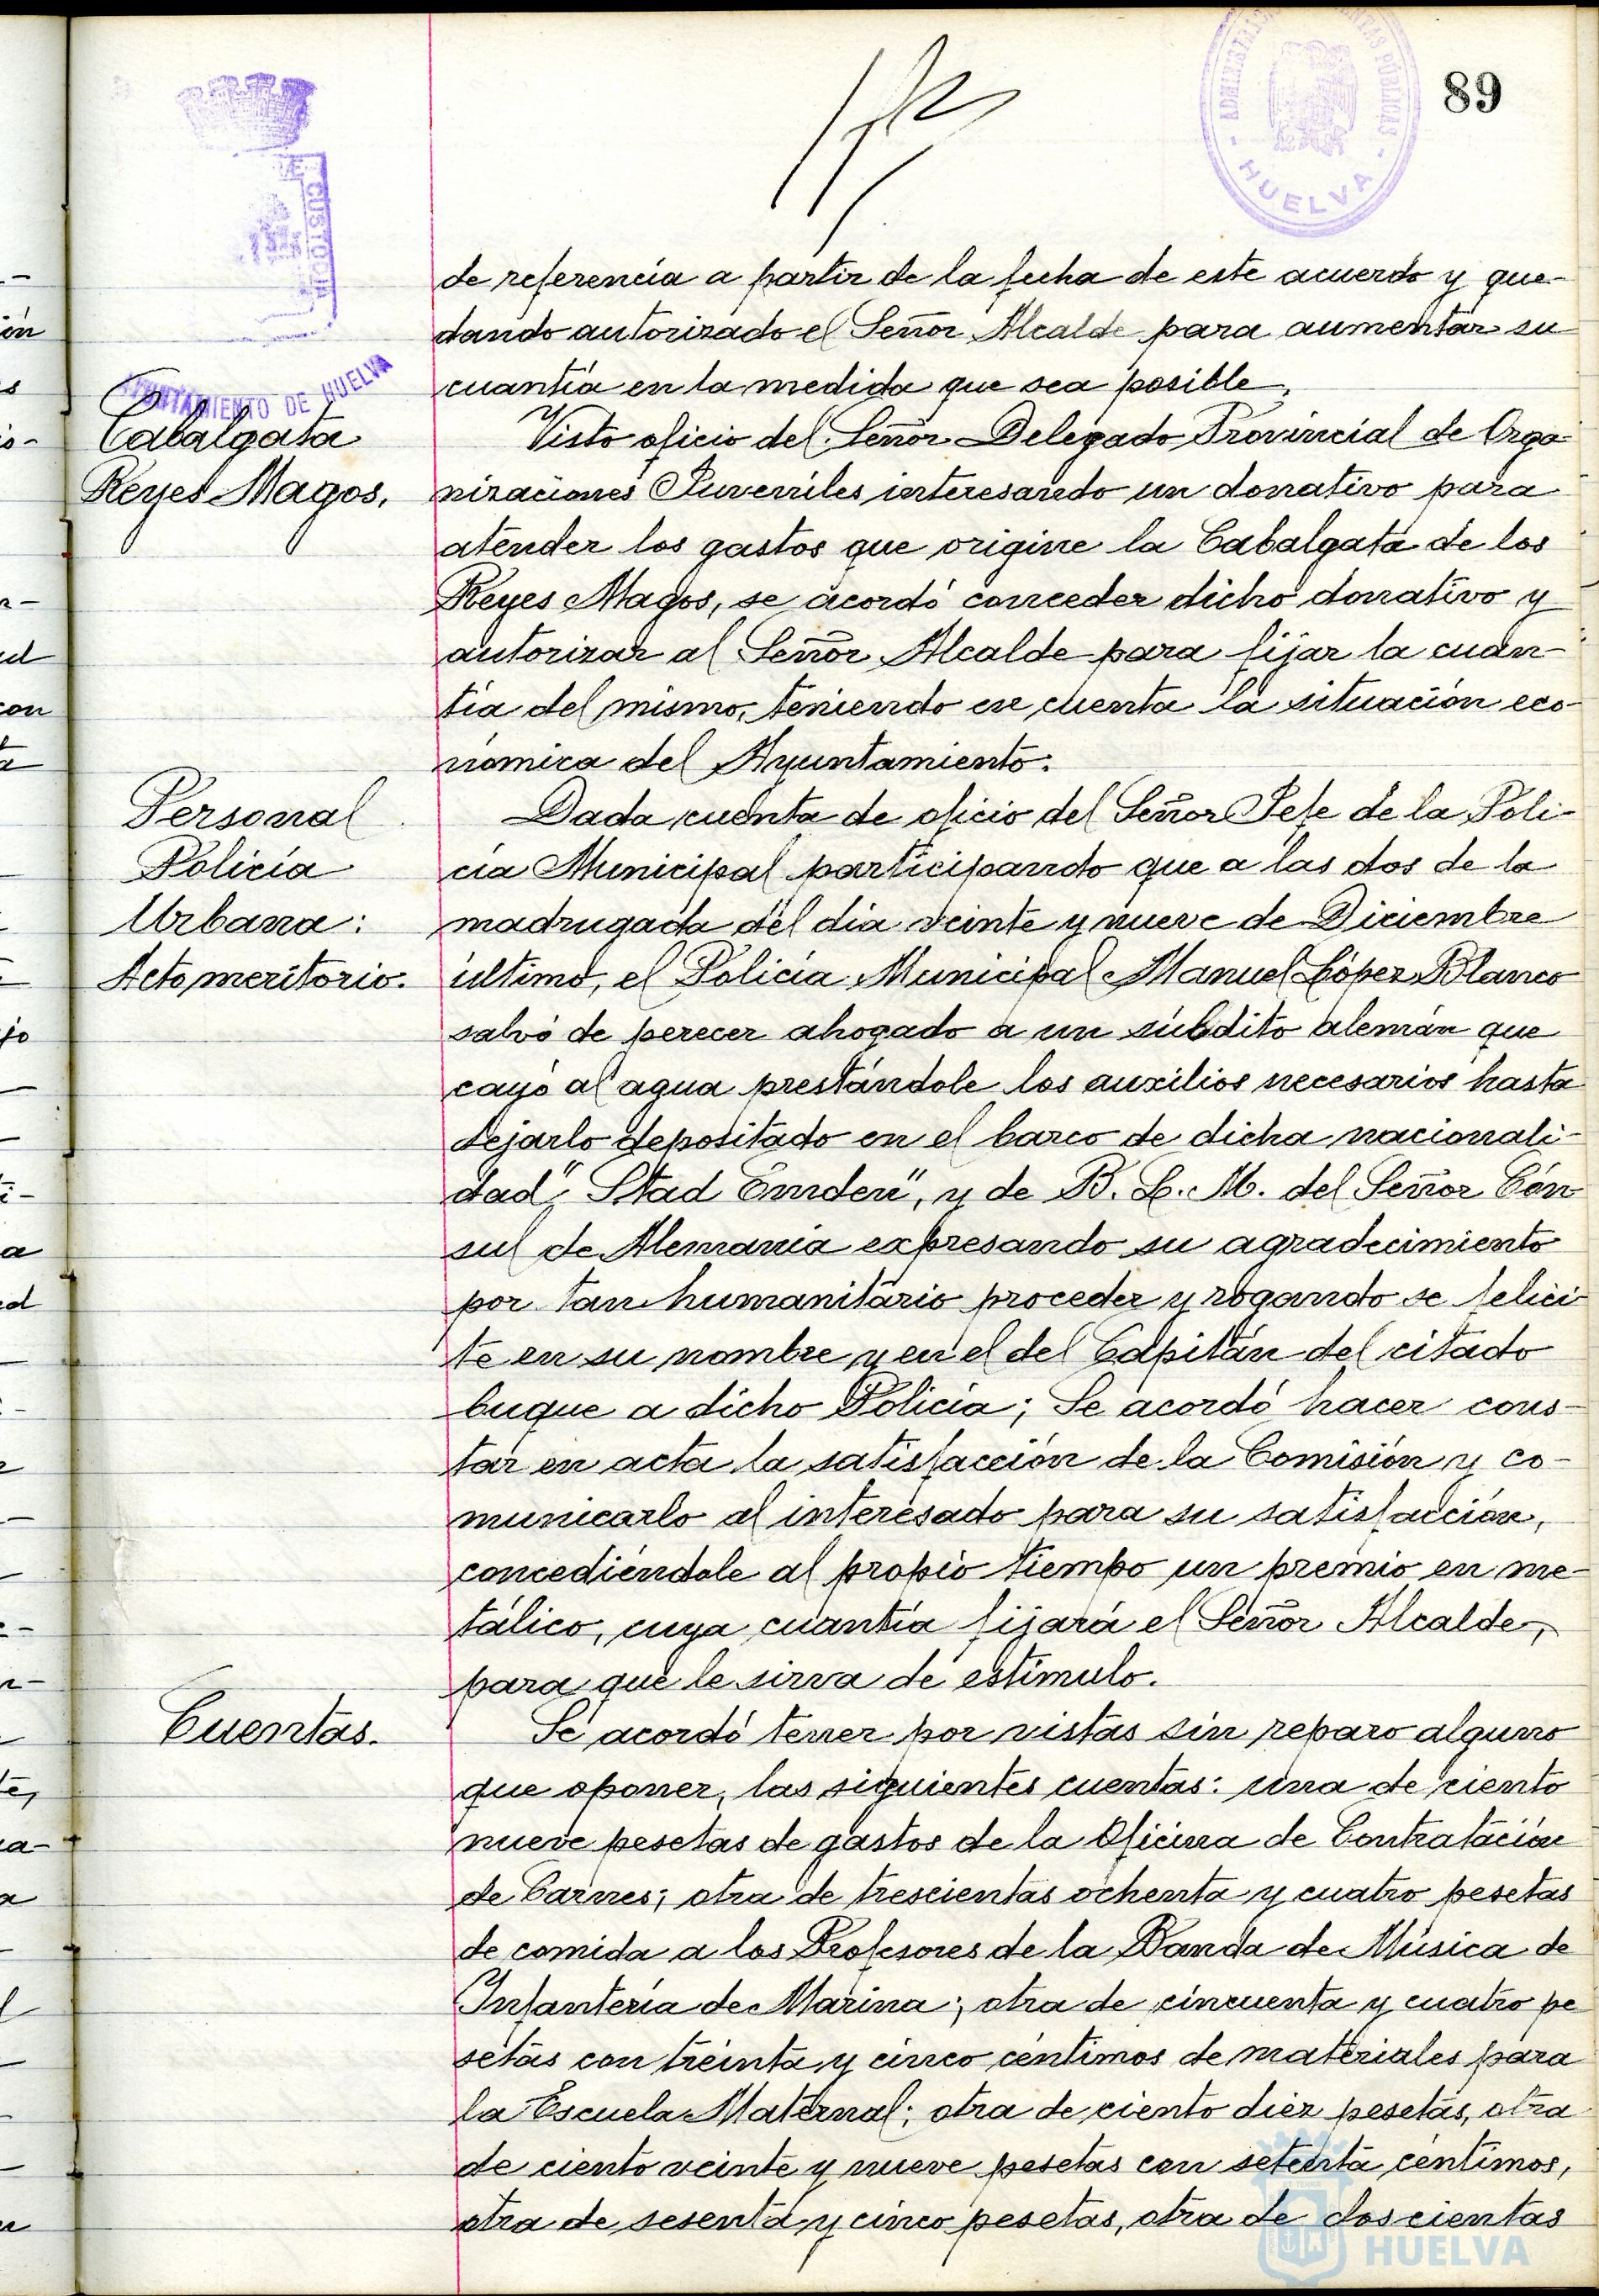 89
ADMINISTRACIÓN PÚBLICAS
- HUELVA -
CUSTODIA
AYUNTAMIENTO DE HUELVA
de referencia a partir de la fecha de este acuerdo y que-
dando autorizado el Señor Alcalde para aumentar su
cuantía en la medida que sea posible.
Cabalgata
Reyes Magos.
Visto oficio del Señor Delegado Provincial de Orga-
nizaciones Juveniles interesando un donativo para
atender los gastos que origine la Cabalgata de los
Reyes Magos, se acordó conceder dicho donativo y
autorizar al Señor Alcalde para fijar la cuan-
tía del mismo, teniendo en cuenta la situación eco-
nómica del Ayuntamiento.
Personal
Policía
Urbana:
Acto meritorio.
Dada cuenta de oficio del Señor Jefe de la Poli-
cía Municipal participando que a las dos de la
madrugada del día veinte y nueve de Diciembre
último, el Policía Municipal Manuel López Blanco
salvó de perecer ahogado a un súbdito alemán que
cayó al agua prestándole los auxilios necesarios hasta
dejarlo depositado en el barco de dicha nacionali-
dad "Stad Emden", y de B. L. M. del Señor Cón
sul de Alemania expresando su agradecimiento
por tan humanitario proceder y rogando se felici
te en su nombre y en el del Capitán del citado
buque a dicho Policía; Se acordó hacer cons-
tar en acta la satisfacción de la Comisión y co-
municarlo al interesado para su satisfacción,
concediéndole al propio tiempo un premio en me-
tálico, cuya cuantía fijará el Señor Alcalde,
para que le sirva de estímulo.
Cuentas.
Se acordó tener por vistas sin reparo alguno
que oponer, las siguientes cuentas: una de ciento
nueve pesetas de gastos de la Oficina de Contratación
de Carnes; otra de trescientas ochenta y cuatro pesetas
de comida a los Profesores de la Banda de Música de
Infantería de Marina; otra de cincuenta y cuatro pe
setas con treinta y cinco céntimos de materiales para
la Escuela Maternal; otra de ciento diez pesetas, otra
de ciento veinte y nueve pesetas con setenta céntimos,
otra de sesenta y cinco pesetas, otra de doscientas
HUELVA